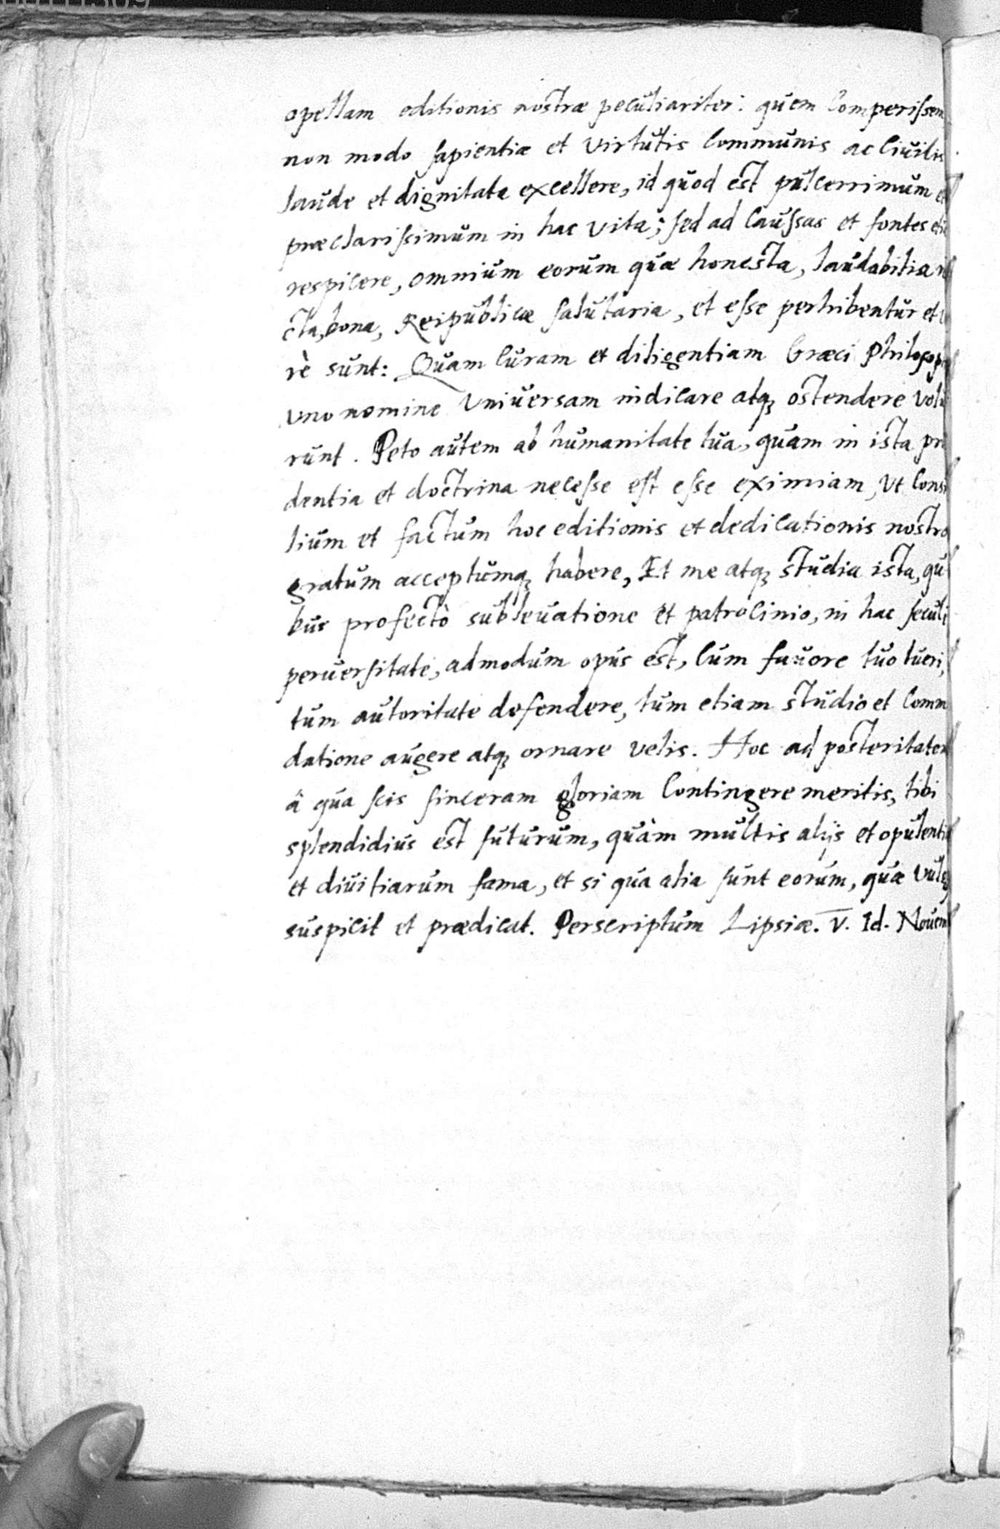 opellam editionis nostræ peculiariter: quem comperissem
non modo sapientiæ et virtutis communis ac ciuilis
laude et dignitate excellere, id quod est pulcerrimum et
præclarissimum in hac vita; sed ad caussas et fontes
respicere, omnium eorum quæ honesta, laudabilia
cta, bona, Reipublicæ salutaria, et esse perhibentur et
rè sunt: Quam curam et diligentiam Græci
uno nomine vniuersam indicare atq ostendere
runt. Peto autem ab humanitate tua, quam in ista pru
dentia et doctrina necesse est esse eximiam, vt consi
lium et factum hoc editionis et dedicationis nostræ
gratum acceptumq habere, Et me atq studia ista, qui
bus profectò subleuatione et patrocinio, in hac seculi
peruersitate, admodum opus est, cum fauore tuo tueri,
tum autoritate defendere, tum etiam studio et comm
datione augere atq ornare velis. Hoc ad posteritatem
â qua scis sinceram gloriam contingere meritis, tibi
splendidius est futurum, quàm multis alijs et opulentia
et diuitiarum fama, et si qua alia sunt eorum, quæ
suspicit et prædicat. Perscriptum Lipsiæ. V. Id. Nouem